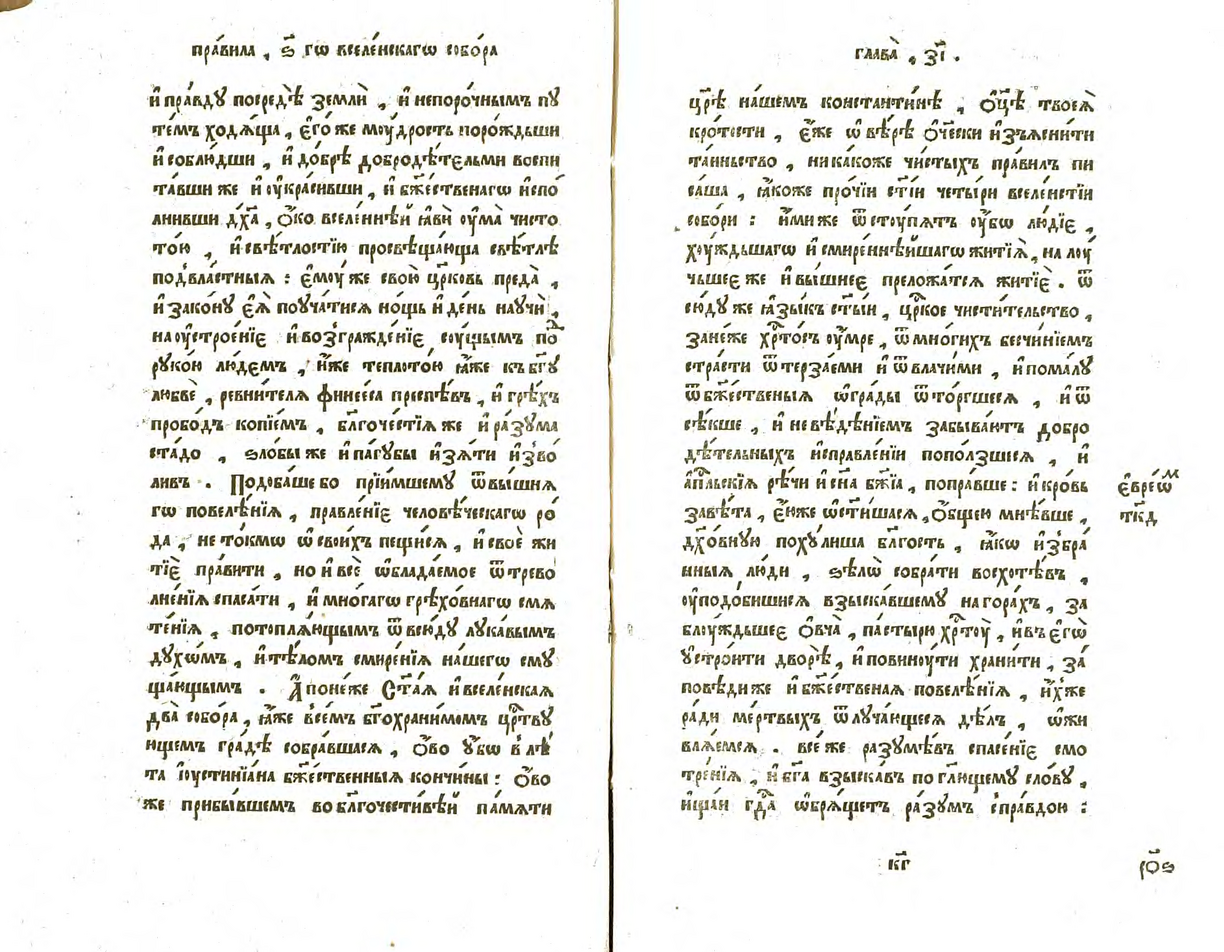 пра́вила , ѕ҃ гѡ вселе́нскагѡ собо́ра
и҆ пра́вдꙋ посредѣ̀ землѝ , и҆ непоро́чнымъ пꙋ
те́мъ ходѧ́ща , є҆го́ же моу́дрость поро́ждьши
и҆ соблю́дши , и҆ до́брѣ добродѣ́тельми воспи
та́вши же и҆ оу҆краси́вши , и҆ бж҃е́ственагѡ и҆спо́
лнивши дх҃а , ѻ҆́ко вселе́ннѣй ꙗ҆вѝ оу҆ма̀ чисто
то́ю , и҆ свѣ́тлостїю просвѣща́юща свѣ́тлѣ
подвла́стныѧ : є҆моу́ же свою̀ цр҃ковь предадѐ ,
и҆ зако́нꙋ є҆ѧ̀ поуча́тисѧ но́щь и҆ де́нь научѝ ,
на оу҆строе́нїе и҆ возгражде́нїе соу́щымъ по́
руко́ю лю́демъ , и҆́же теплото́ю ꙗ҆́же къ бг҃ꙋ
любвѐ , ревни́телѧ финее́са преспѣ́въ , и҆ грѣ́хъ
пробо́дъ копїе́мъ , блг҃оче́стїѧ же и҆ ра́зума
ста́до , ѕло́бы же и҆ па́губы и҆зѧ́ти и҆зво́
ливъ . Подоба́ше бо прїи́мшему ѿ вы́шнѧ
гѡ повелѣ́нїѧ , правле́нїе человѣ́ческагѡ ро́
да , не то́кмѡ ѡ҆ свои́хъ пещи́сѧ , и҆ своѐ жи
тїѐ пра́вити , но и҆ всѐ ѡ҆блада́емое ѿ трево
лне́нїѧ спаса́ти , и҆ мно́гагѡ грѣхо́внагѡ смѧ
те́нїѧ , потоплѧ́ющымъ ѿ всю́дꙋ лука́вымъ
дꙋ́хѡмъ , и҆ тѣ́ломъ смире́нїѧ на́шегѡ сму
ща́ющымъ . А҆ поне́же Ст҃а́ѧ и҆ вселе́нскаѧ
два̀ собо́ра , ꙗ҆́же все́мъ бг҃охрани́момъ цр҃твꙋ
ющемъ гра́дѣ собра́вшасѧ , ѻ҆́во у҆́бѡ в лѣ́
та і҆оустинїа́на бж҃е́ственныѧ кончи́ны : ѻ҆́во
же прибы́вшемъ во благочести́вѣй па́мѧти
глава̀ , з҃і .
цр҃ѣ на́шемъ константи́нѣ , ѻ҆ц҃ѣ твоеѧ̀
кро́тости , є҆́же ѡ҆ вѣ́рѣ ѻ҆́чески и҆зъѧсни́ти
та́иньство , ника́коже чи́стыхъ пра́вилъ пи
са́ша , ꙗ҆́коже про́чїи ст҃і́и четы́ри вселе́нстїи
собо́ри : и҆́ми же ѿстоу́пѧтъ оу҆́бѡ лю́дїе ,
хоу́ждьшагѡ и҆ смире́ннѣйшагѡ житїѧ̀ , на лоу́
чьшее же и҆ вы́шнее преложа́тсѧ житїѐ . ѿ
сю́дꙋ же ꙗ҆зы́къ ст҃ы́и , цр҃кое чисти́тельство ,
зане́же хр҃то́съ оу҆́мре , ѿ мно́гихъ бесчи́нїемъ
стра́сти ѿтерза́еми и҆ ѿвлачи́ми , и҆ пома́лꙋ
ѿ бж҃е́ственыѧ ѡ҆гра́ды ѿто́ргшесѧ , и҆ ѿ
сѣ́кше , и҆ невѣ́дѣнїемъ забыва́ютъ добро
дѣ́тельныхъ и҆справле́нїи попо́лзшесѧ , и҆
а҆пⷭ҇льскїѧ рѣ́чи и҆ сн҃а бж҃їѧ , попра́вше : и҆ кро́вь
завѣ́та , є҆́юже ѡ҆ст҃и́шасѧ , ѻ҆́бщею мнѣ́вше ,
дх҃о́вную похꙋ́лиша бл҃гость , ꙗ҆́кѡ и҆збра́
нныѧ лю́ди , ѕѣлѡ̀ собра́ти восхотѣ́въ ,
оу҆подо́бишисѧ взыска́вшему на гора́хъ , за
блоу́ждьшее ѻ҆вча̀ , па́стырю хр҃тоу̀ , и҆ въ є҆гѡ̀
у҆стро́ити дворѣ̀ , и҆ повиноу́ти храни́ти , за́
повѣди же и҆ бж҃е́ственаѧ повелѣ́нїѧ , и҆́хже
ра́ди ме́ртвыхъ ѿлуча́ющесѧ дѣ́лъ , ѡ҆жи
влѧ́емсѧ . все́ же разумѣ́въ спасе́нїе смо
тре́нїѧ , и҆ бг҃а взыска́въ по гл҃ющему сло́вꙋ ,
и҆ща́и гдⷭ҇а ѡ҆брѧ́щетъ ра́зумъ с пра́вдою :
є҆вре́ѡⷨ
тк҃д
кг҃
рѻ҃ѕ